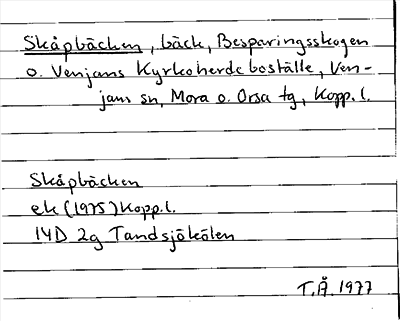 Skåpbäcken, bäck, Besparingsskogen
o. Venjans Kyrkoherdeboställe, Ven-
jans sn, Mora o. Orsa tg, Kopp.l.
Skåpbäcken
ek (1975) Kopp.l.
14D 2g Tandsjökölen
T.Å. 1977